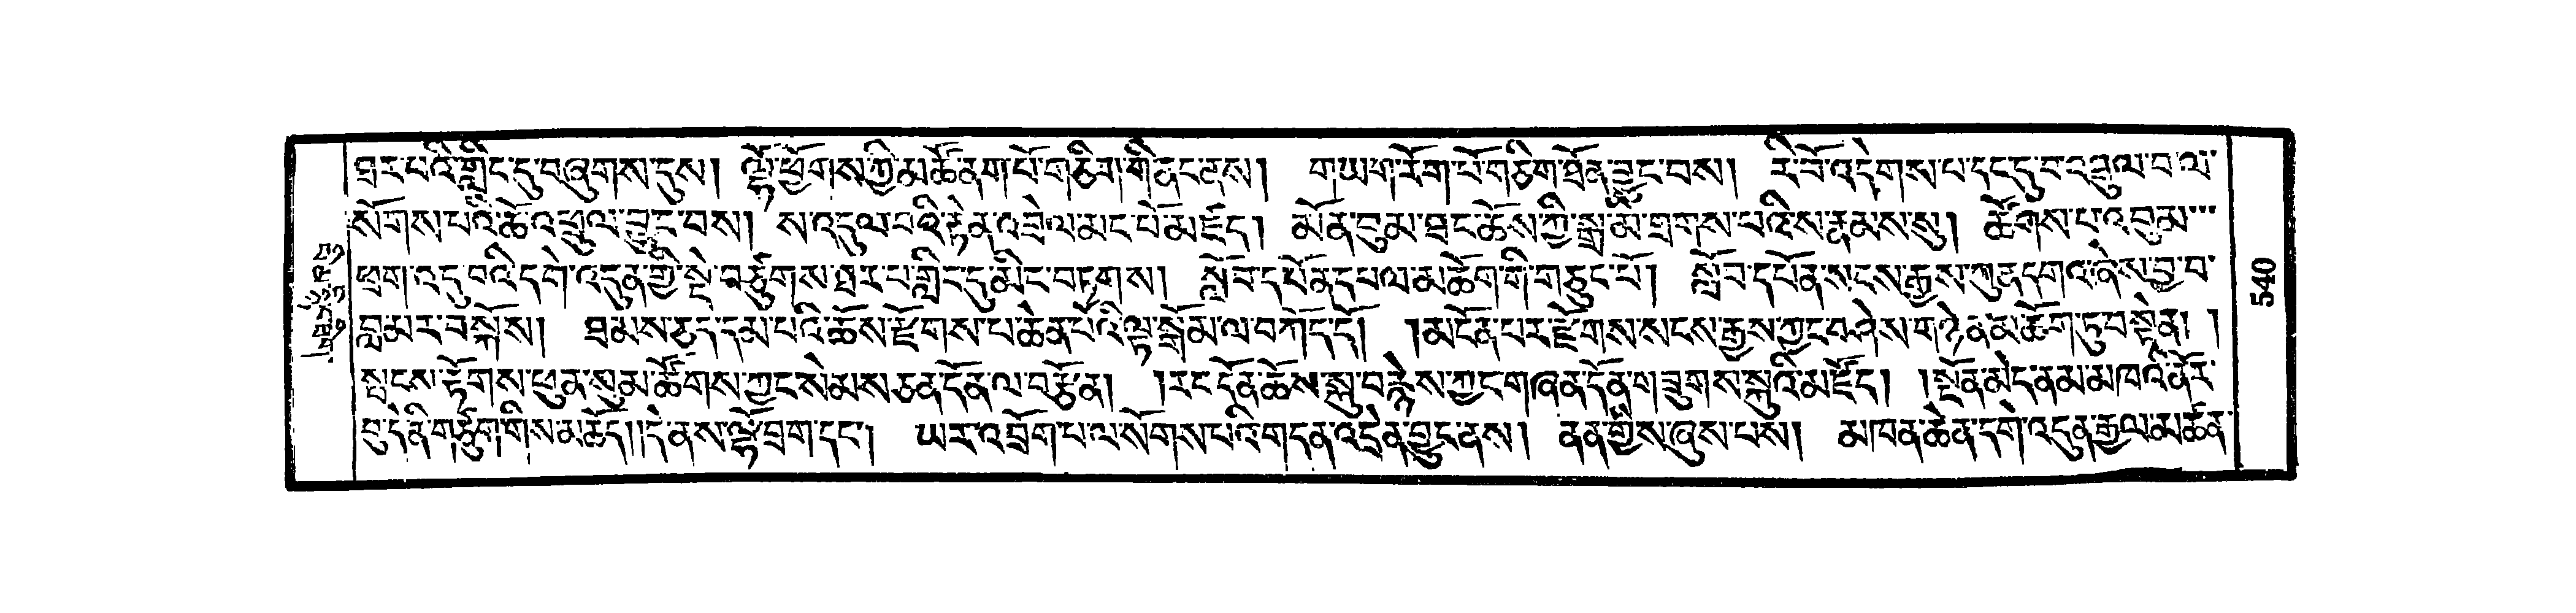 ཐར་པའི་གླིང་དུ་བཞུགས་དུས། ལྷོ་ཕྱོགས་ཀྱི་མཚོ་ནག་པོ་གཅིག་གི་ནང་ནས། གཡག་རོག་པོ་གཅིག་ཐོན་བྱུང་བས། རི་བོ་འདེགས་པ་དང་དུ་བ་འཇུལ་བ་ལ་
སོགས་པའི་ཆོ་འཕྲུལ་བྱུང་བས། ས་འདུལ་བའི་རྟེན་འབྲེལ་མང་པོ་མཛད། མོན་བུམ་ཐང་ཆོས་ཀྱི་སྒྲ་མི་གྲགས་པའིས་རྣམས་སུ། ཚོགས་པ་འབུམ་
ཕྲག་འདུ་བའི་དགེ་འདུན་གྱི་སྡེ་བཙུགས་ཐར་པ་གླིང་དུ་མིང་བཏགས། སློབ་དཔོན་དཔལ་མཆོག་གི་གཅུང་པོ། སློབ་དཔོན་སངས་རྒྱས་ཀུན་དགའ་ཞེས་བྱ་བ་
བླ་མར་བསྐོས། ཐམས་ཅད་དམ་པའི་ཆོས་རྫོགས་པ་ཆེན་པོའི་ལྟ་སྒོམ་ལ་བཀོད་དོ། །མངོན་པར་རྫོགས་སངས་རྒྱས་ཀྱང་བཤེས་གཉེན་མཆོག་ཏུ་བསྟེན། །
སྤངས་རྟོགས་ཕུན་སུམ་ཚོགས་ཀྱང་སེམས་ཅན་དོན་ལ་བརྩོན། །རང་དོན་ཆོས་སྐུ་བརྙེས་ཀྱང་གཞན་དོན་གཟུགས་སྐུའི་མཛོད། །སྤྲོན་མེད་ནམ་མཁའི་ནོར་
བུ་དེ་ནི་གཙུག་གིས་མཆོད།།དེ་ནས་ལྷོ་བྲག་དང་། ཡར་འབྲོག་པ་ལ་སོགས་པའི་གདན་འདྲེན་བྱུང་ནས། ནན་གྱིས་ཞུས་པས། མཁན་ཆེན་དགེ་འདུན་རྒྱལ་མཚན་
045